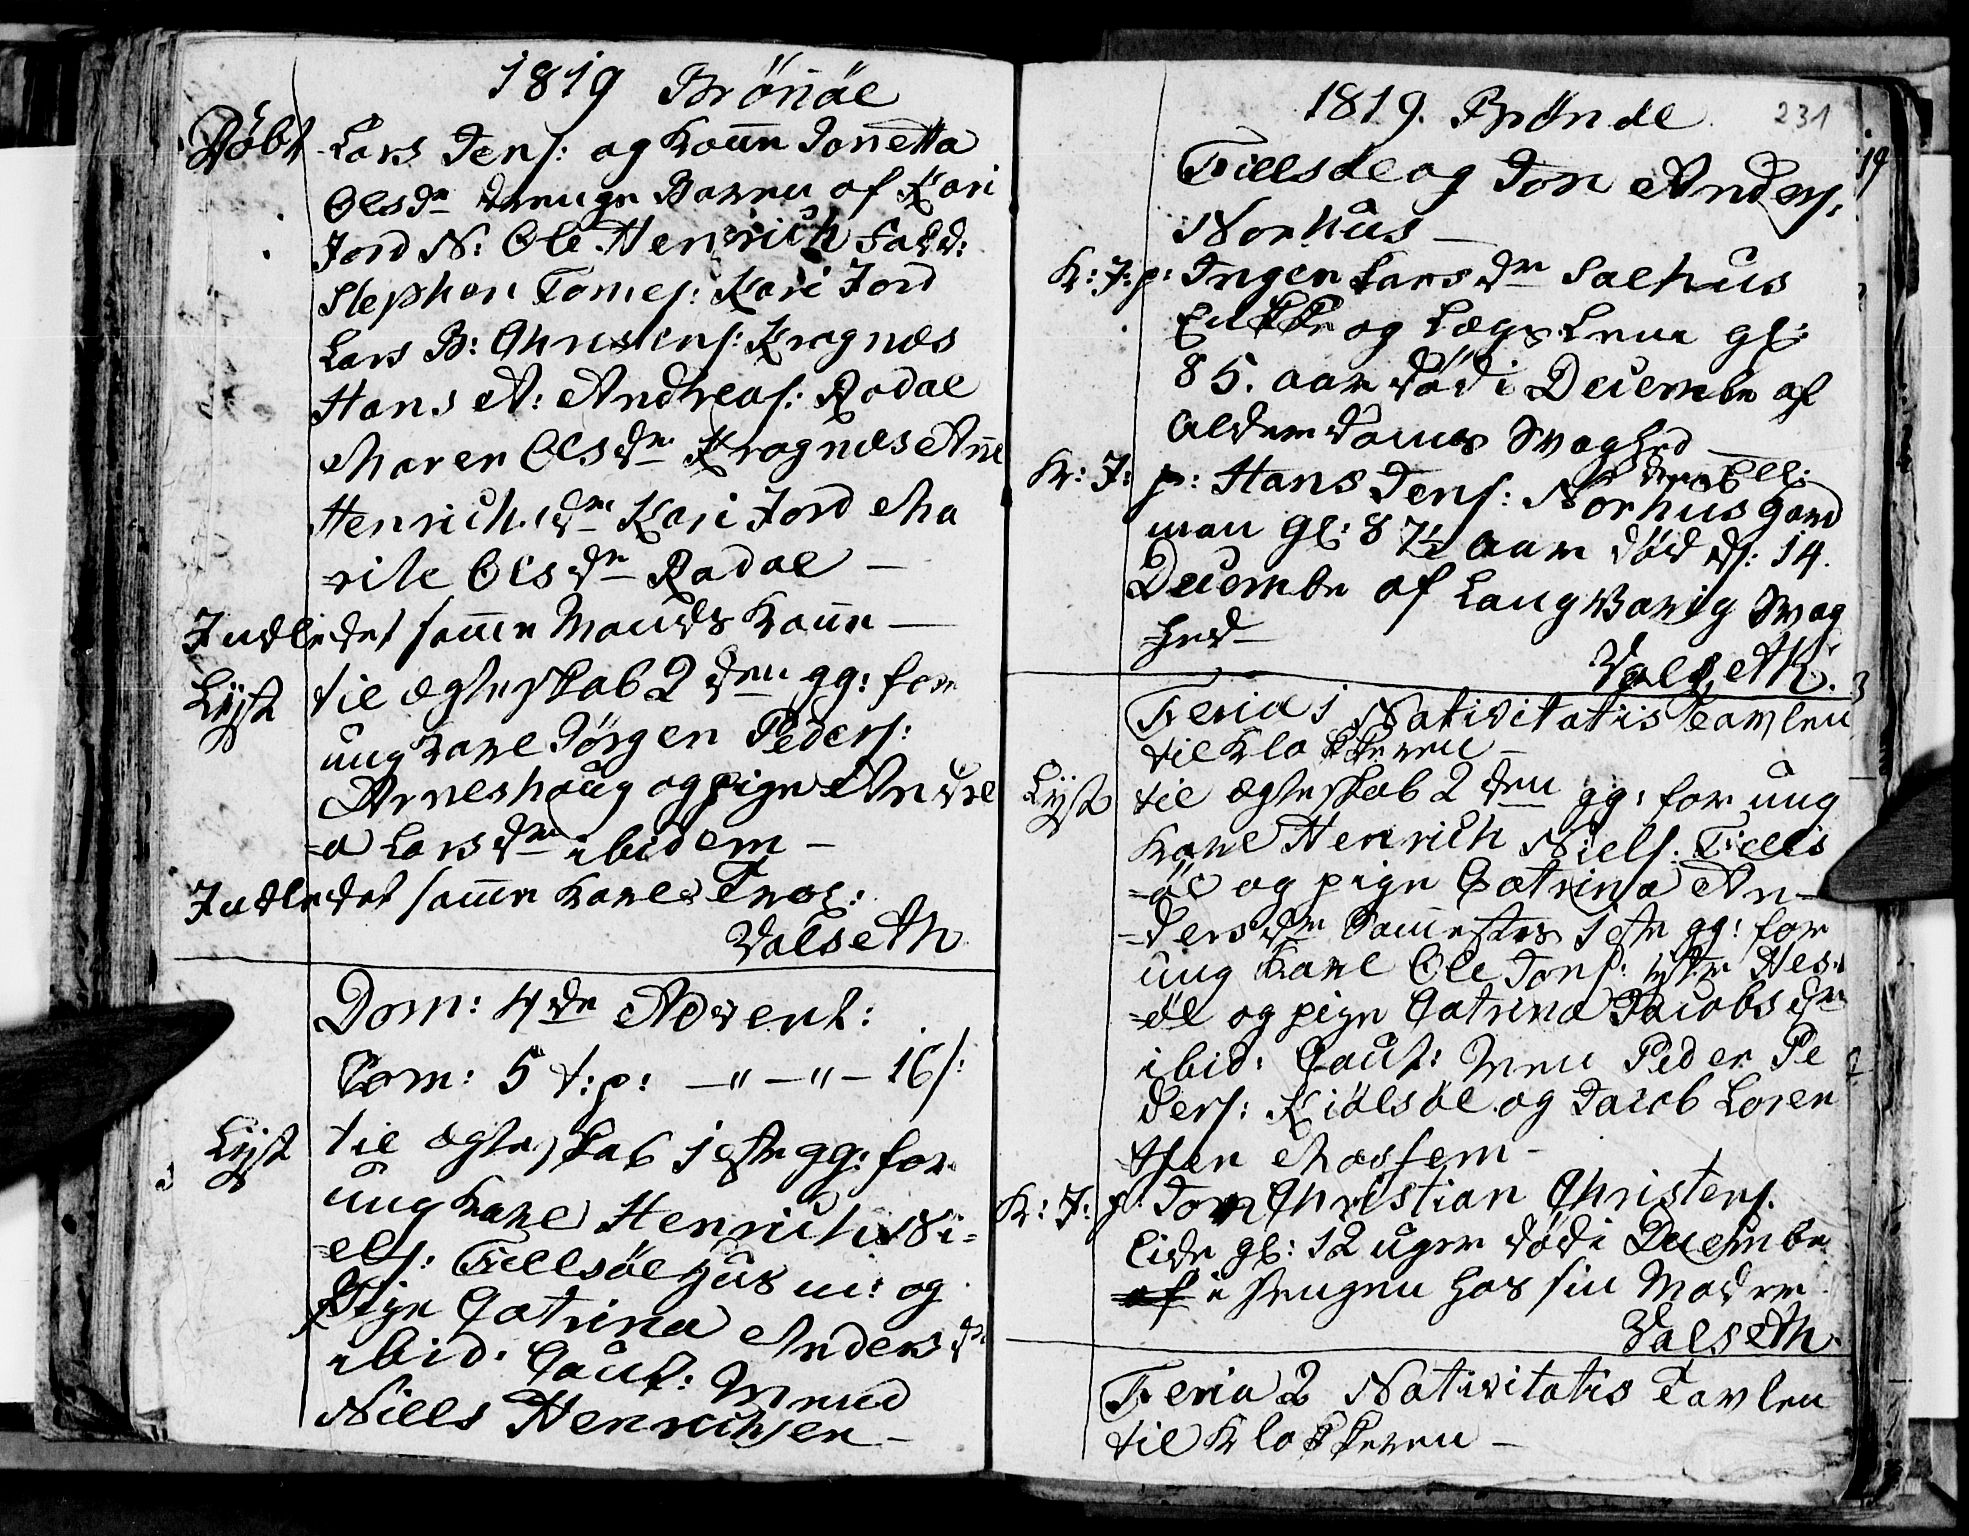 1819 Brönöe
Döbt Lars Jens: og Kone Jonetta
Olsdr drenge Barn af Kari
Jord N: Ole Henrich Fadd:
Stephen Tomes: Kari Jord
Lars B: Christens: Krognes
Hans A: Andreas: Rodal
Maren Olsdr Krognes Añe
Henrichsdr Kari Jord Ma
rite Olsdr Rodal —
Indledet same Mands Kone —
Lyst til ægteskab 2den gg: for
ung karl Jörgen Peders:
Arneshaug og pige Andre
=a Larsdr ibidem —
Indledet same Karls Trol:
Valseth
Dom: 4de Advent:
Com: 5 t:p: — " — " — 16 s:
Lyst til ægteskab 1ste gg: for
ung karl Henrich Ni=
=els: Tillsöe Huus m: og
Pige Catrina Andersdr
ibid. Caut: Mend
Niels Henrichsen —
1819. Brönöe 231
Tillsöe og Jon Anders:
Norhus —
K: J: p: Inger Larsdr Salhus
Enke og Lægs Lem gl:
85. aar död i Decembr af
Alderdoms Svaghed —
K: J: p: Hans Jens: Norhus Gard
man gl: 87½ aar död d: 14.
Decembr af Langvarig Svag
hed —
Valseth.
Feria 1 Nativitatis Tavlen
til Klokkeren —
Lyst til ægteskab 2den gg: for ung
Karl Henrich Niels: Tills
=öe og pige Catrina An-
=dersdr Samestes 1ste gg: for
ung Karl Ole Jons: Hes
=öe og pige Catrina Jacobsdr
ibid: Caut: Men Peder Pe
ders: Kiölsöe og Jacob Loren
tsen Mosfem —
K: J: p: Jon Christian Christens.
Eide gl: 12 uger död i Decembr
i Sengen hos sin Moder
Valseth.
Feria 2 Nativitatis Tavlen
til Klokkeren —